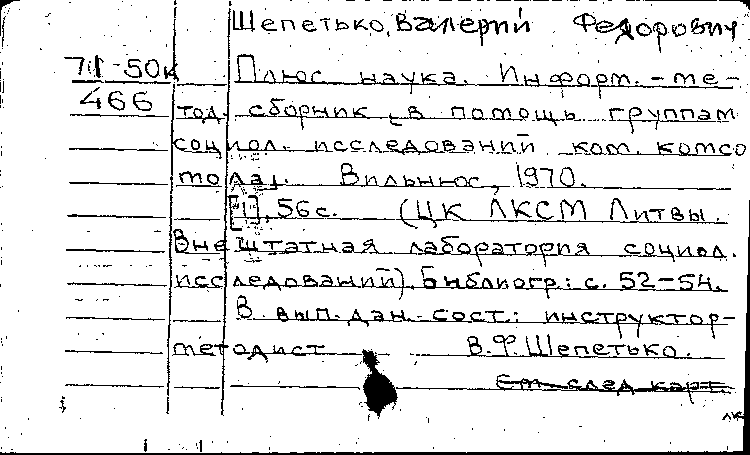 Шепетько, Валерий Федорович
71-50к Плюс наука. Информ.-ме-
466 тод. сборник в помощь группам
социол. исследований ком. комсо
мола]. Вильнюс, 1970.
[1], 56 с. (ЦК ЛКСМ Литвы.
Внештатная лаборатория социол.
исследований). Библиогр.: с. 52-54.
В вып. дан. сост.: инструктор-
методист В.Ф. Шепетько.
См след карт.